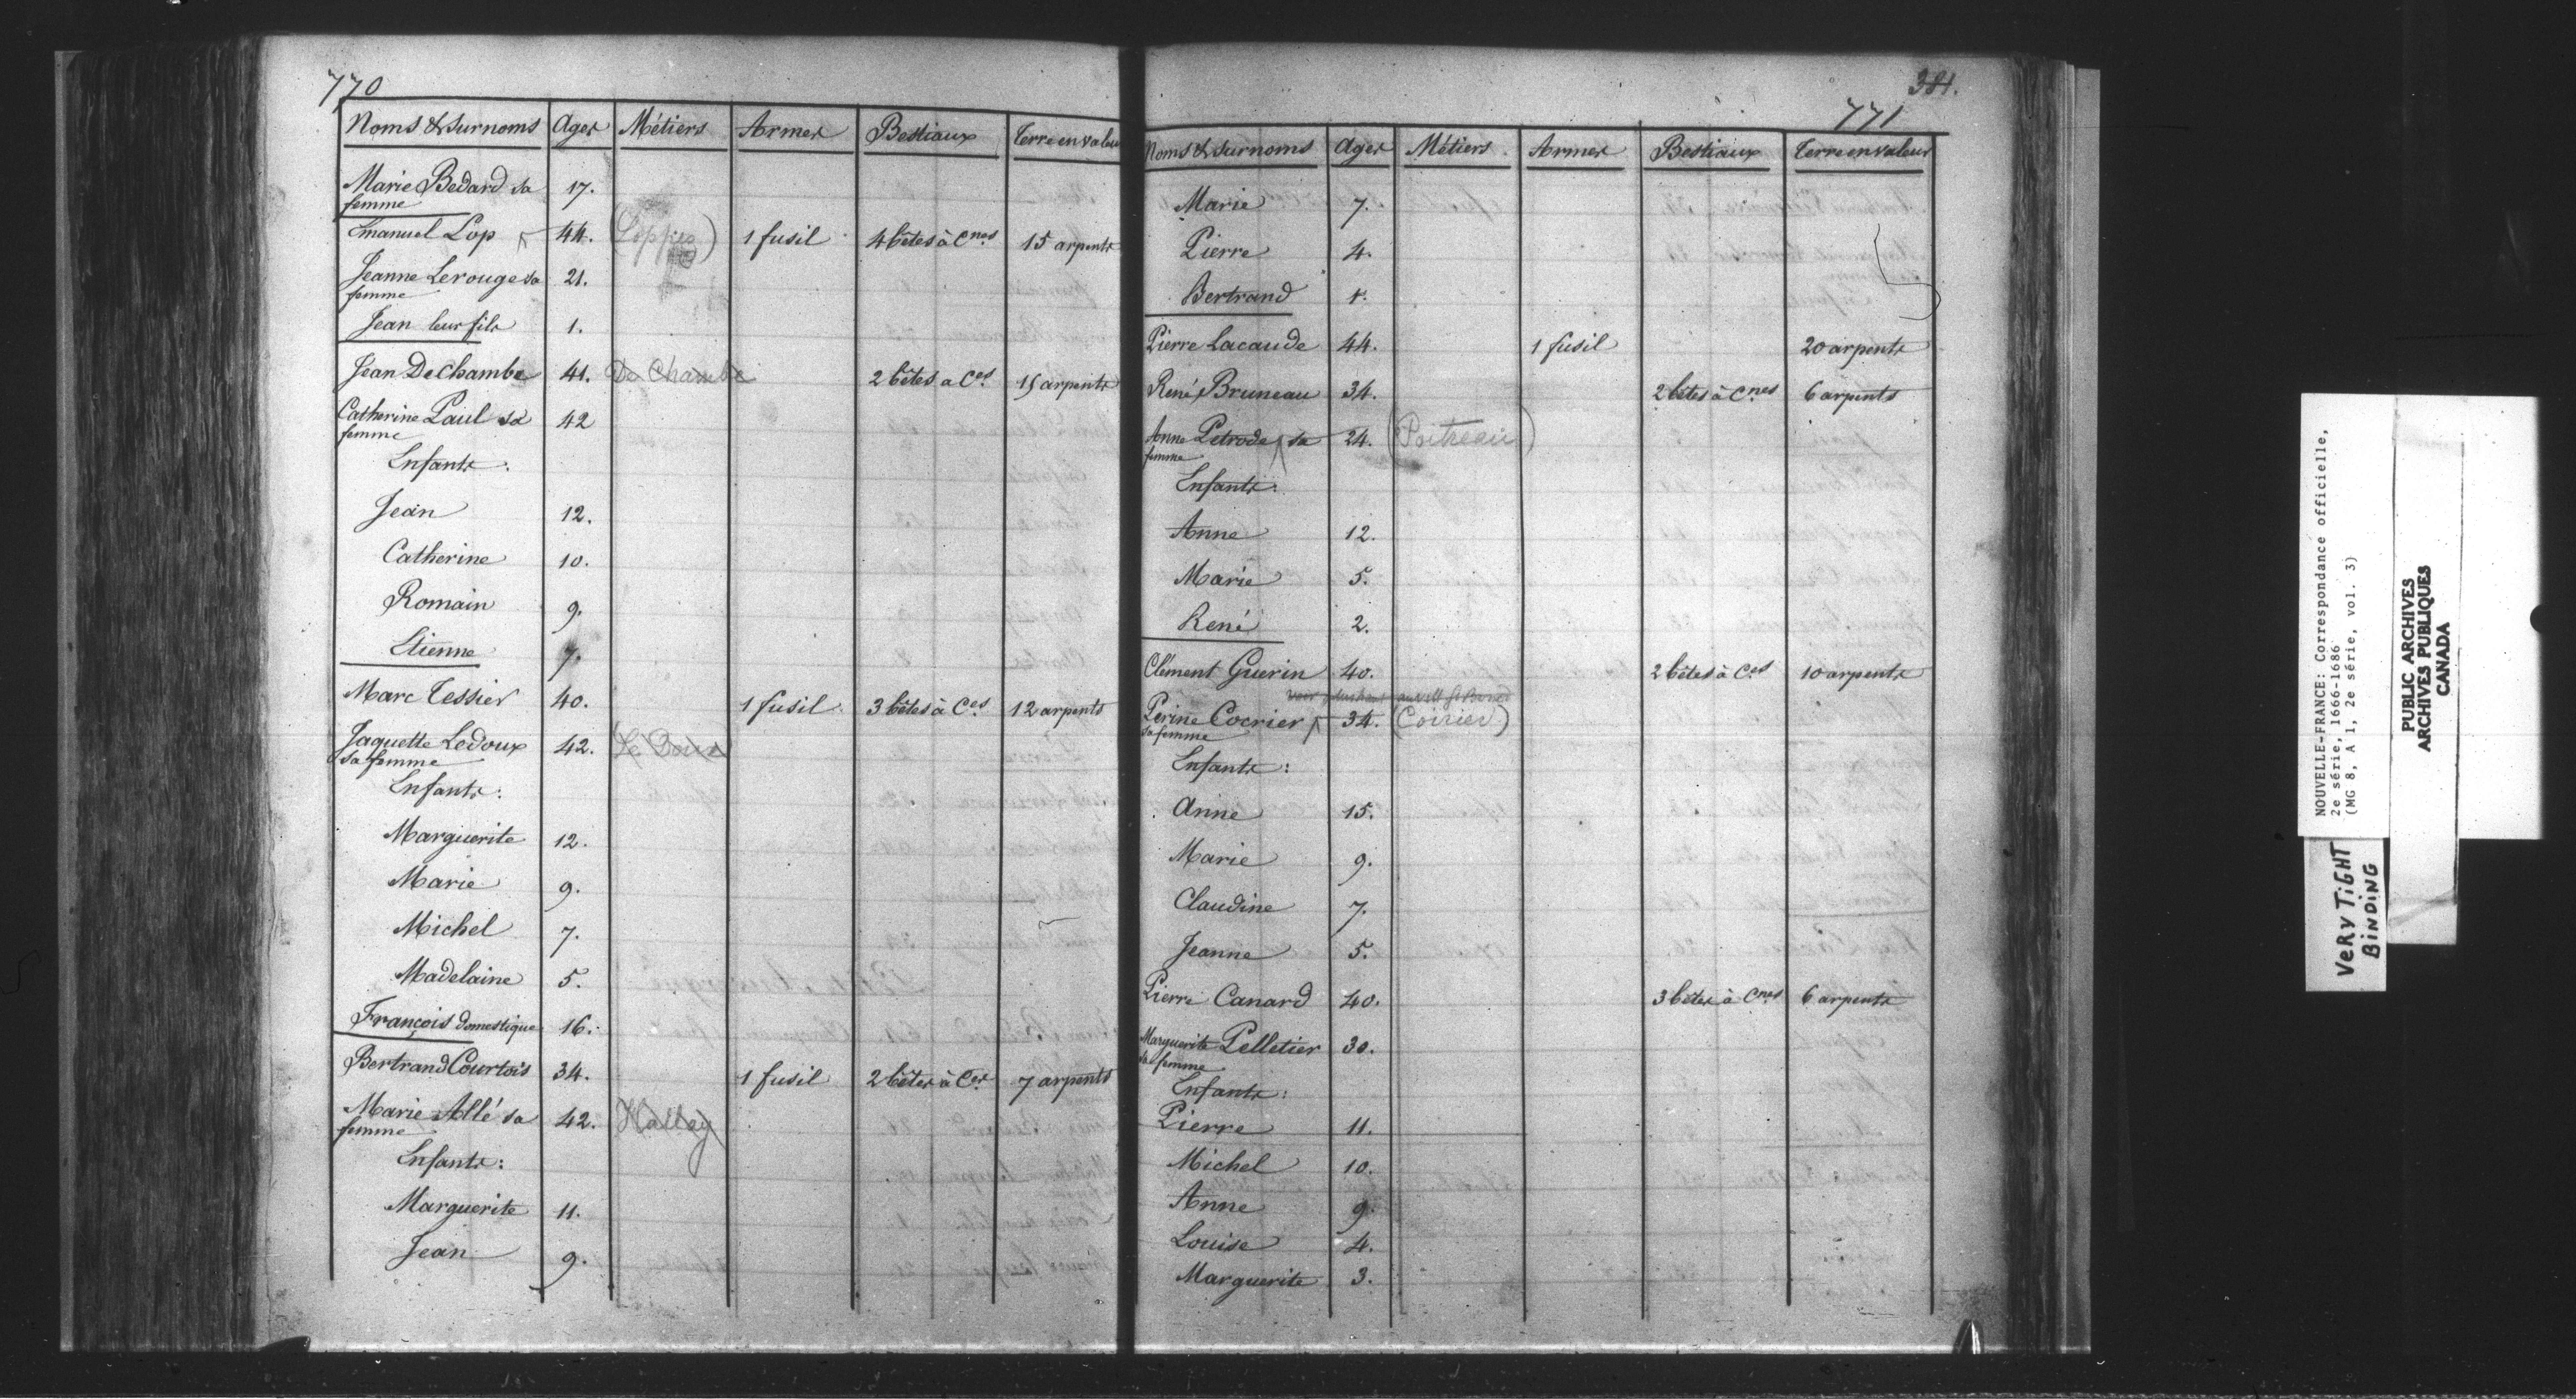 770
Noms & Surnoms Ages Métiers Armes Bestiaux Terre en valeur
Marie Bedard sa 17.
femme
Emanuel Lop 44. (Loppes) 1 fusil 4 bêtes à Cnes 15 arpents
Jeanne Lerouge sa 21.
femme
Jean leur fils 1.
Jean De Chambe 41. De Chambe 2 bêtes a Ces 15 arpents
Catherine Paul sa 42
femme
Enfants:
Jean 12.
Catherine 10.
Romain 9.
Etienne 7.
Marc Tessier 40. 1 fusil 3 bêtes à Ces 12 arpents
Jaquette Ledoux 42. Le Doux
sa femme
Enfants:
Marguerite 12.
Marie 9.
Michel 7.
Madelaine 5.
François domestique 16.
Bertrand Courtois 34. 1 fusil 2 bêtes à Ces 7 arpents
Marie Allé sa 42. Halley
femme
Enfants:
Marguerite 11.
Jean 9.
381.
771
Noms & Surnoms Ages Métiers Armes Bestiaux Terre en valeur
Marie 7.
Pierre 4.
Bertrand 1.
Pierre Lacaude 44. 1 fusil 20 arpents
René Bruneau 34. 2 bêtes à Cnes 6 arpents
Anne Petrode sa 24. (Poitreau)
femme
Enfants:
Anne 12.
Marie 5.
René 2.
Clément Guerin 40. 2 bêtes à Ces 10 arpents
voir plus haut
Perine Cocrier 34. (Coirier)
sa femme
Enfants:
Anne 15.
Marie 9.
Claudine 7.
Jeanne 5.
Pierre Canard 40. 3 bêtes à Cnes 6 arpents
Marguerite Pelletier 30.
sa femme
Enfants:
Pierre 11.
Michel 10.
Anne 9.
Louise 4.
Marguerite 3.
NOUVELLE-FRANCE: Correspondance officielle,
2e série, 1666-1686
(MG 8, A 1, 2e série, vol. 3)
PUBLIC ARCHIVES
ARCHIVES PUBLIQUES
CANADA
VERY TIGHT
BINDING